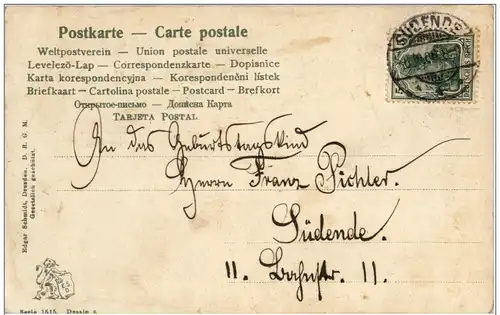 Postkarte — Carte postale
Weltpostverein — Union postale universelle
Levelező-Lap — Correspondenzkarte — Dopisnice
Karta korespondencyjna — Korespondenční lístek
Briefkaart — Cartolina postale — Postcard — Brefkort
Открытое-письмо — Дописна Карта
TARJETA POSTAL
SÜDENDE
An das Geburtstagskind
Herrn Franz Pichler.
Südende.
11. Bahnstr. 11.
Edgar Schmidt, Dresden. D. R. G. M.
Gesetzlich geschützt.
Serie 1615. Dessin 6